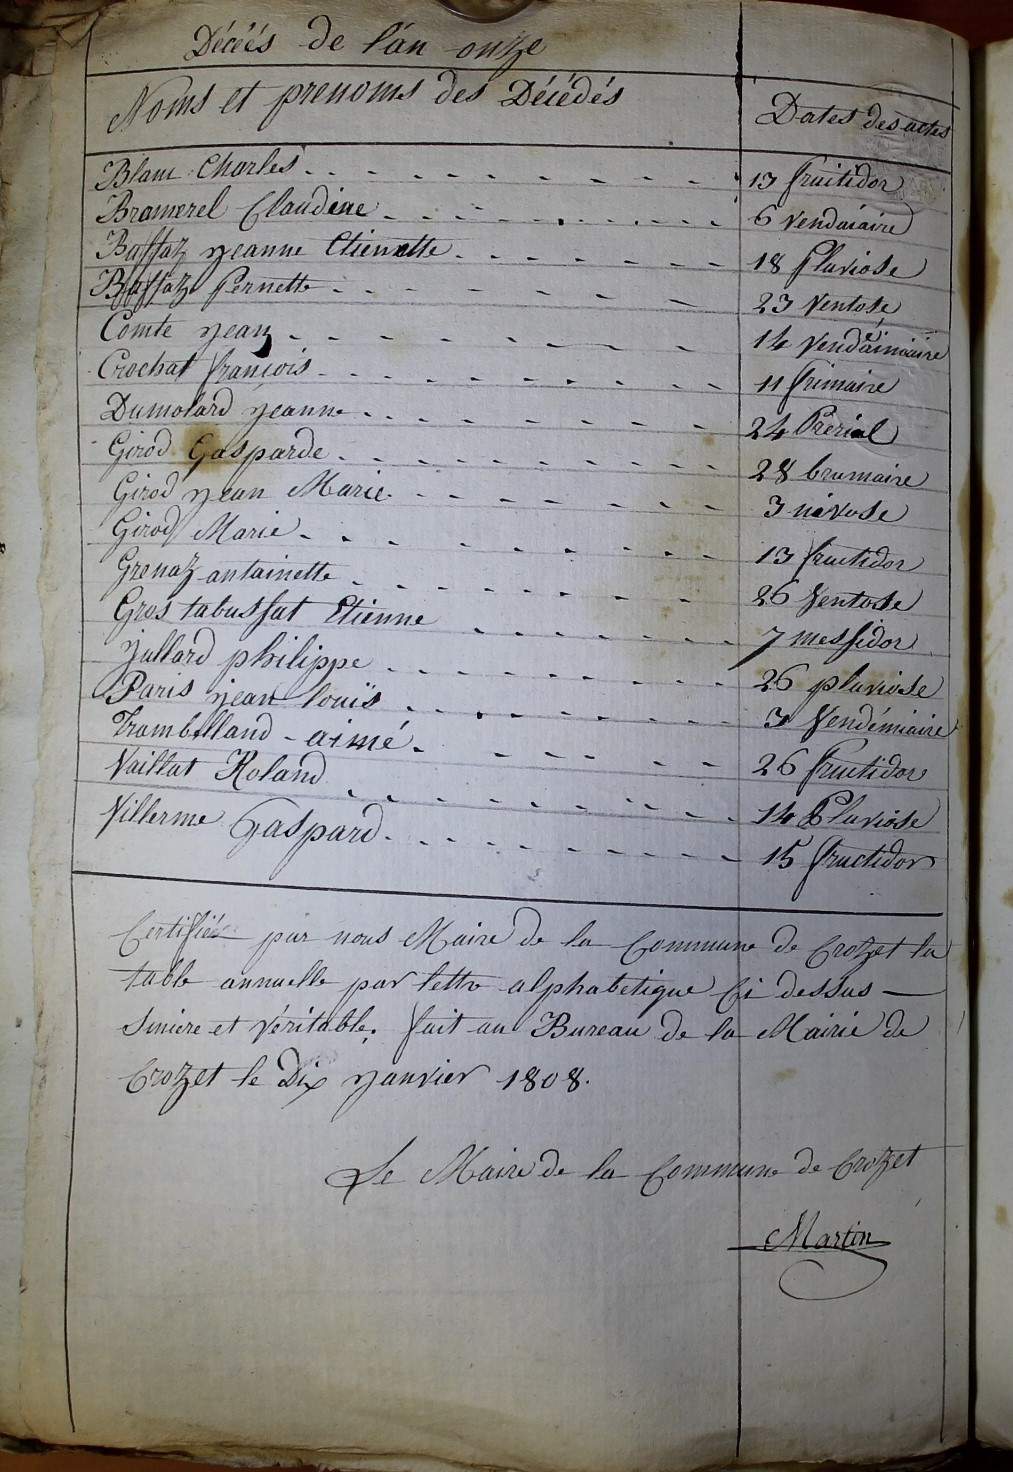 Décés de l'an onze
Noms et prenoms des Décédés
Dates des actes
Blanc Charles 13 fruitidor
Bramerel Claudine 6 vendaiaire
Baffaz jeanne Etiennette 18 Pluviose
Baffaz Pernette 23 Ventose
Comte jean 14 vendémiaire
Crochat françois 11 frimaire
Dumolard jeanne 24 Prérial
Girod Gasparde 28 brumaire
Girod jean Marie 3 nivose
Girod Marie 13 fructidor
Grenaz antainette 26 Ventose
Gros tabussat Etienne 7 messidor
Jullard philippe 26 pluviose
Paris jean louis 3 Vendémiaire
Trambelland aimé 26 fructidor
Vaillat Roland 14 Pluviose
Villerme Gaspard 15 fructidor
Certifiée par nous Maire de la Commune de Crozet la
table annuelle par lettre alphabetique Ci dessus
Sincere et véritable. fait au Bureau de la Mairie de
Crozet le Dix janvier 1808.
Le Maire de la Commune de Crozet
Martin